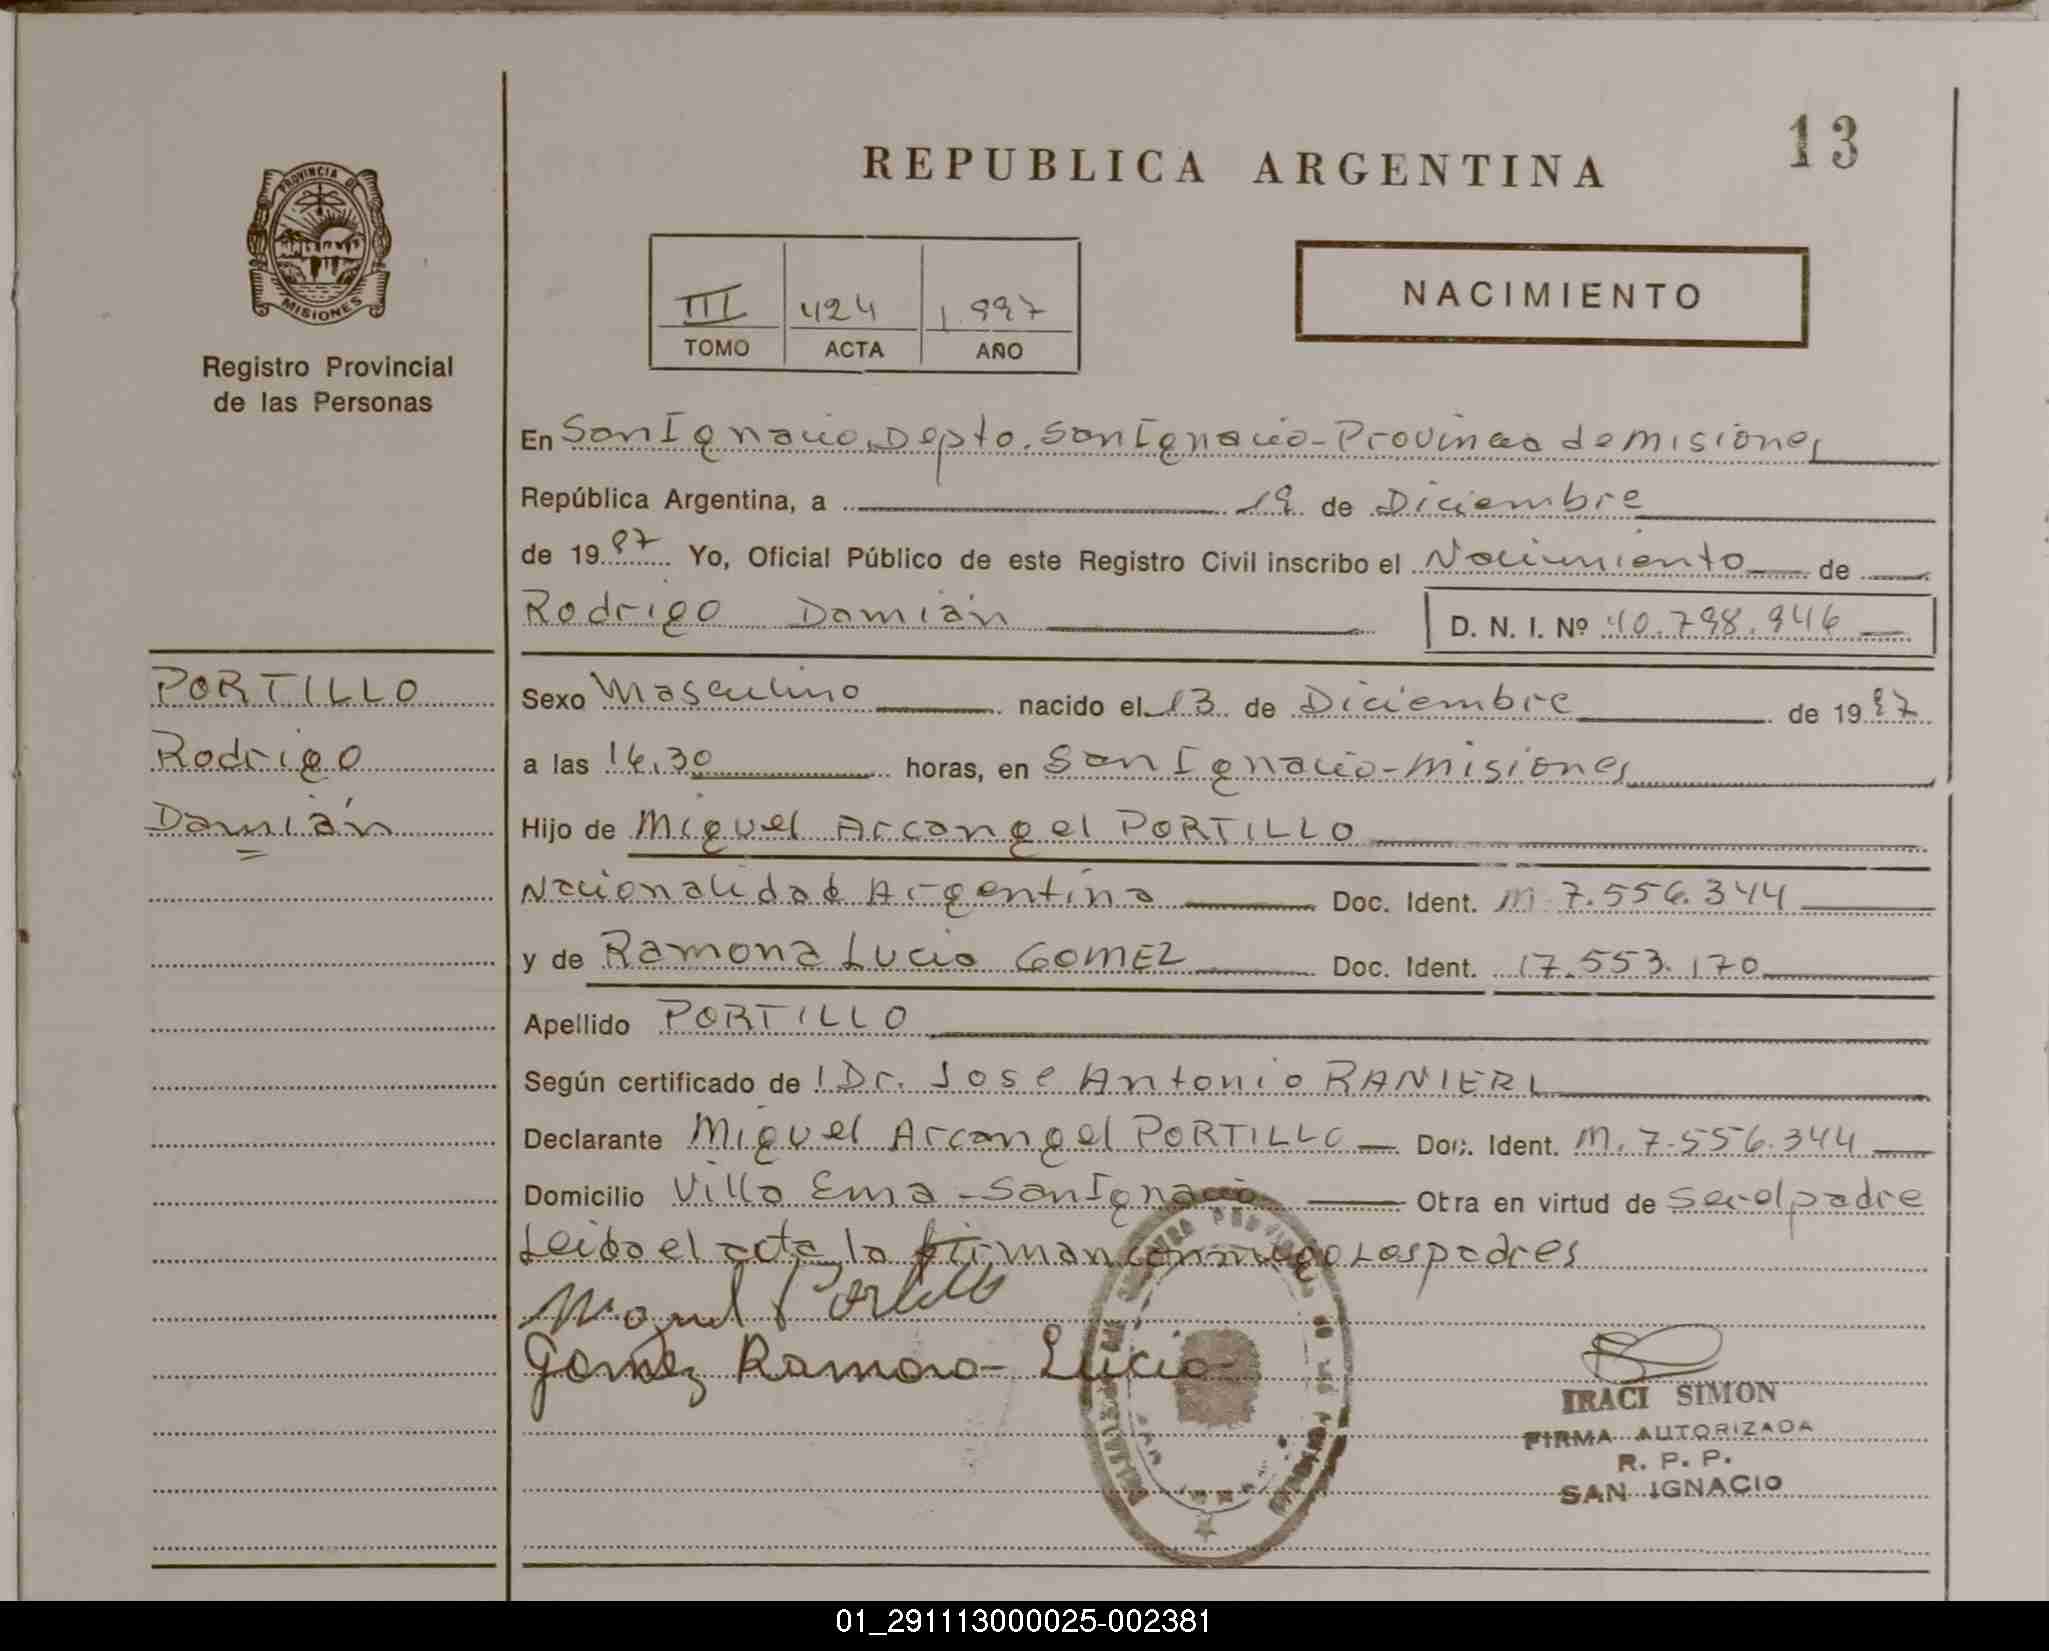 13
REPUBLICA ARGENTINA
PROVINCIA DE
MISIONES
Registro Provincial
de las Personas
NACIMIENTO
III 424 1.997
TOMO ACTA AÑO
En San Ignacio, Depto. San Ignacio - Provincia de Misiones
República Argentina, a 19 de Diciembre
de 1997 Yo, Oficial Público de este Registro Civil inscribo el Nacimiento de
Rodrigo Damián D. N. I. Nº 40.798.946
PORTILLO
Rodrigo
Damián
Sexo Masculino nacido el 13 de Diciembre de 1997
a las 16,30 horas, en San Ignacio - Misiones
Hijo de Miguel Arcangel PORTILLO
Nacionalidad Argentina Doc. Ident. M. 7.556.344
y de Ramona Lucia GOMEZ Doc. Ident. 17.553.170
Apellido PORTILLO
Según certificado de l Dr. Jose Antonio RANIERI
Declarante Miguel Arcangel PORTILLO Doc. Ident. M. 7.556.344
Domicilio Villa Ema - San Ignacio Obra en virtud de Ser el padre
Leida el acta la firman conmigo Los padres
Miguel Portillo
Gomez Ramona Lucia
IRACI SIMON
FIRMA AUTORIZADA
R. P. P.
SAN IGNACIO
01_291113000025-002381